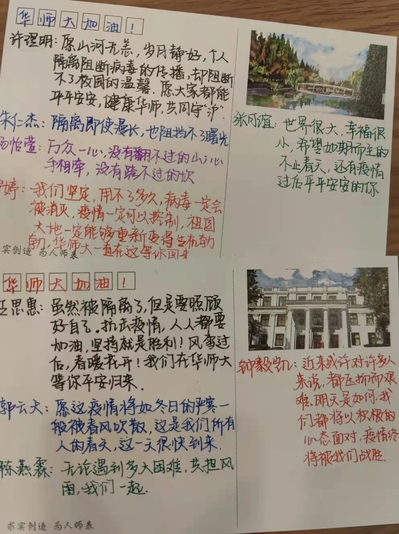 华师大加油！
许涅明：愿山河无恙，岁月静好，个人
隔离阻断病毒的传播，却阻断
不了校园的温馨。愿大家都能
平平安安，健康华师，共同守“沪”
朱仁杰：隔离即使漫长，也阻挡不了曙光
万众一心，没有翻不过的山；心
手相牵，没有跨不过的坎
婷：我们坚定，用不了多久，病毒一定会
被消灭，疫情一定可以控制，祖国
大地一定能够重新变得生机勃
勃，华师大一直在这等你回来
求实创造 为人师表
张可馆：世界很大，幸福很
小，希望如期而至的
不止春天，还有疫情
过后平平安安的你
华师大加油！
王思惠：虽然被隔离了，但是要照顾
好自己，抗击疫情，人人都要
加油，坚持就是胜利！风雪过
后，春暖花开！我们在华师大
等你平安归来。
郭云天：愿这疫情将如冬日的严寒一
般被春风吹散，这是我们所有
人的春天，这一天很快到来.
陈燕霖：无论遇到多大困难，共担风
雨，我们一起.
求实创造 为人师表
钟毅凯：近来或许对许多人
来说，都压抑而艰
难.明天是如何，我
们都将以积极的
心态面对，疫情终
将被我们战胜.